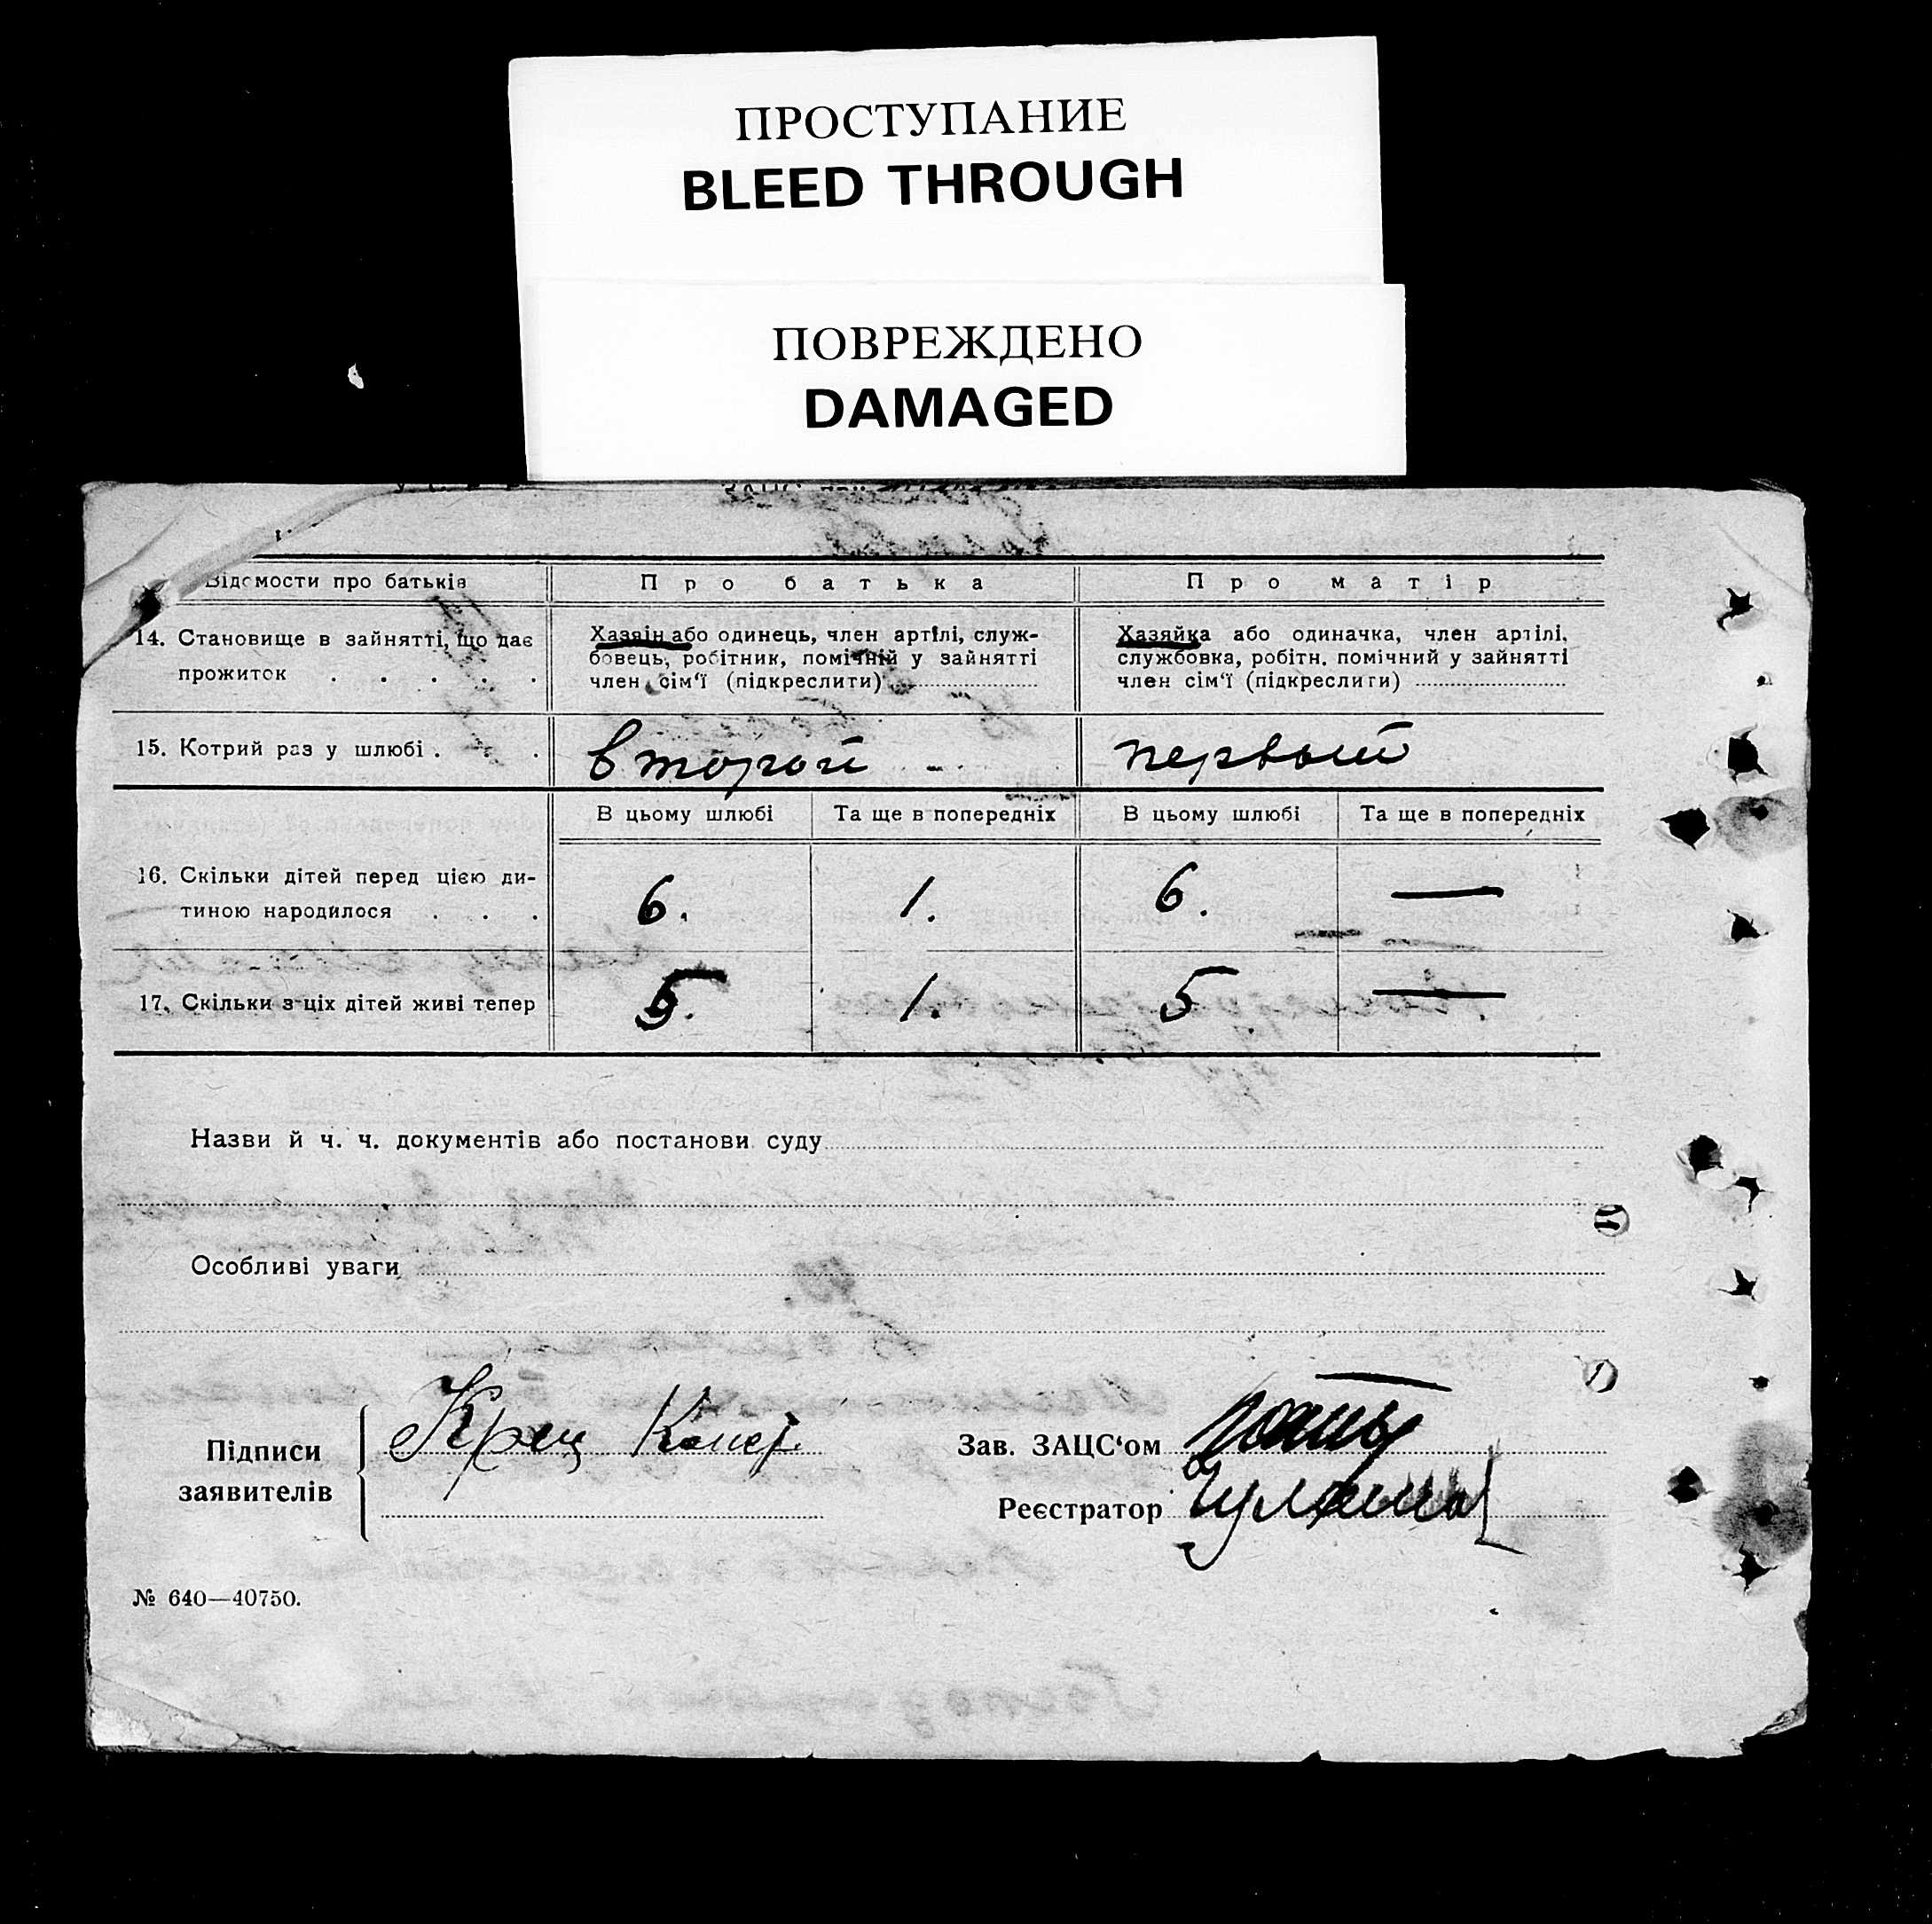 ПРОСТУПАНИЕ
BLEED THROUGH
ПОВРЕЖДЕНО
DAMAGED
Відомости про батьків
Про батька
Про матір
14. Становище в зайнятті, що дає
прожиток . . . . .
Хазяїн або одинець, член артілі, служ-
бовець, робітник, помічний у зайнятті
член сім'ї (підкреслити)
Хазяйка або одиначка, член артілі,
службовка, робітн. помічний у зайнятті
член сім'ї (підкреслити)
15. Котрий раз у шлюбі . . .
второй
первый
В цьому шлюбі
Та ще в попередніх
В цьому шлюбі
Та ще в попередніх
16. Скільки дітей перед цією ди-
тиною народилося . . .
6.
1.
6.
—
17. Скільки з ціх дітей живі тепер
5.
1.
5
—
Назви й ч. ч. документів або постанови суду
Особливі уваги
Підписи
заявителів
Зав. ЗАЦС'ом
Реєстратор
№ 640—40750.